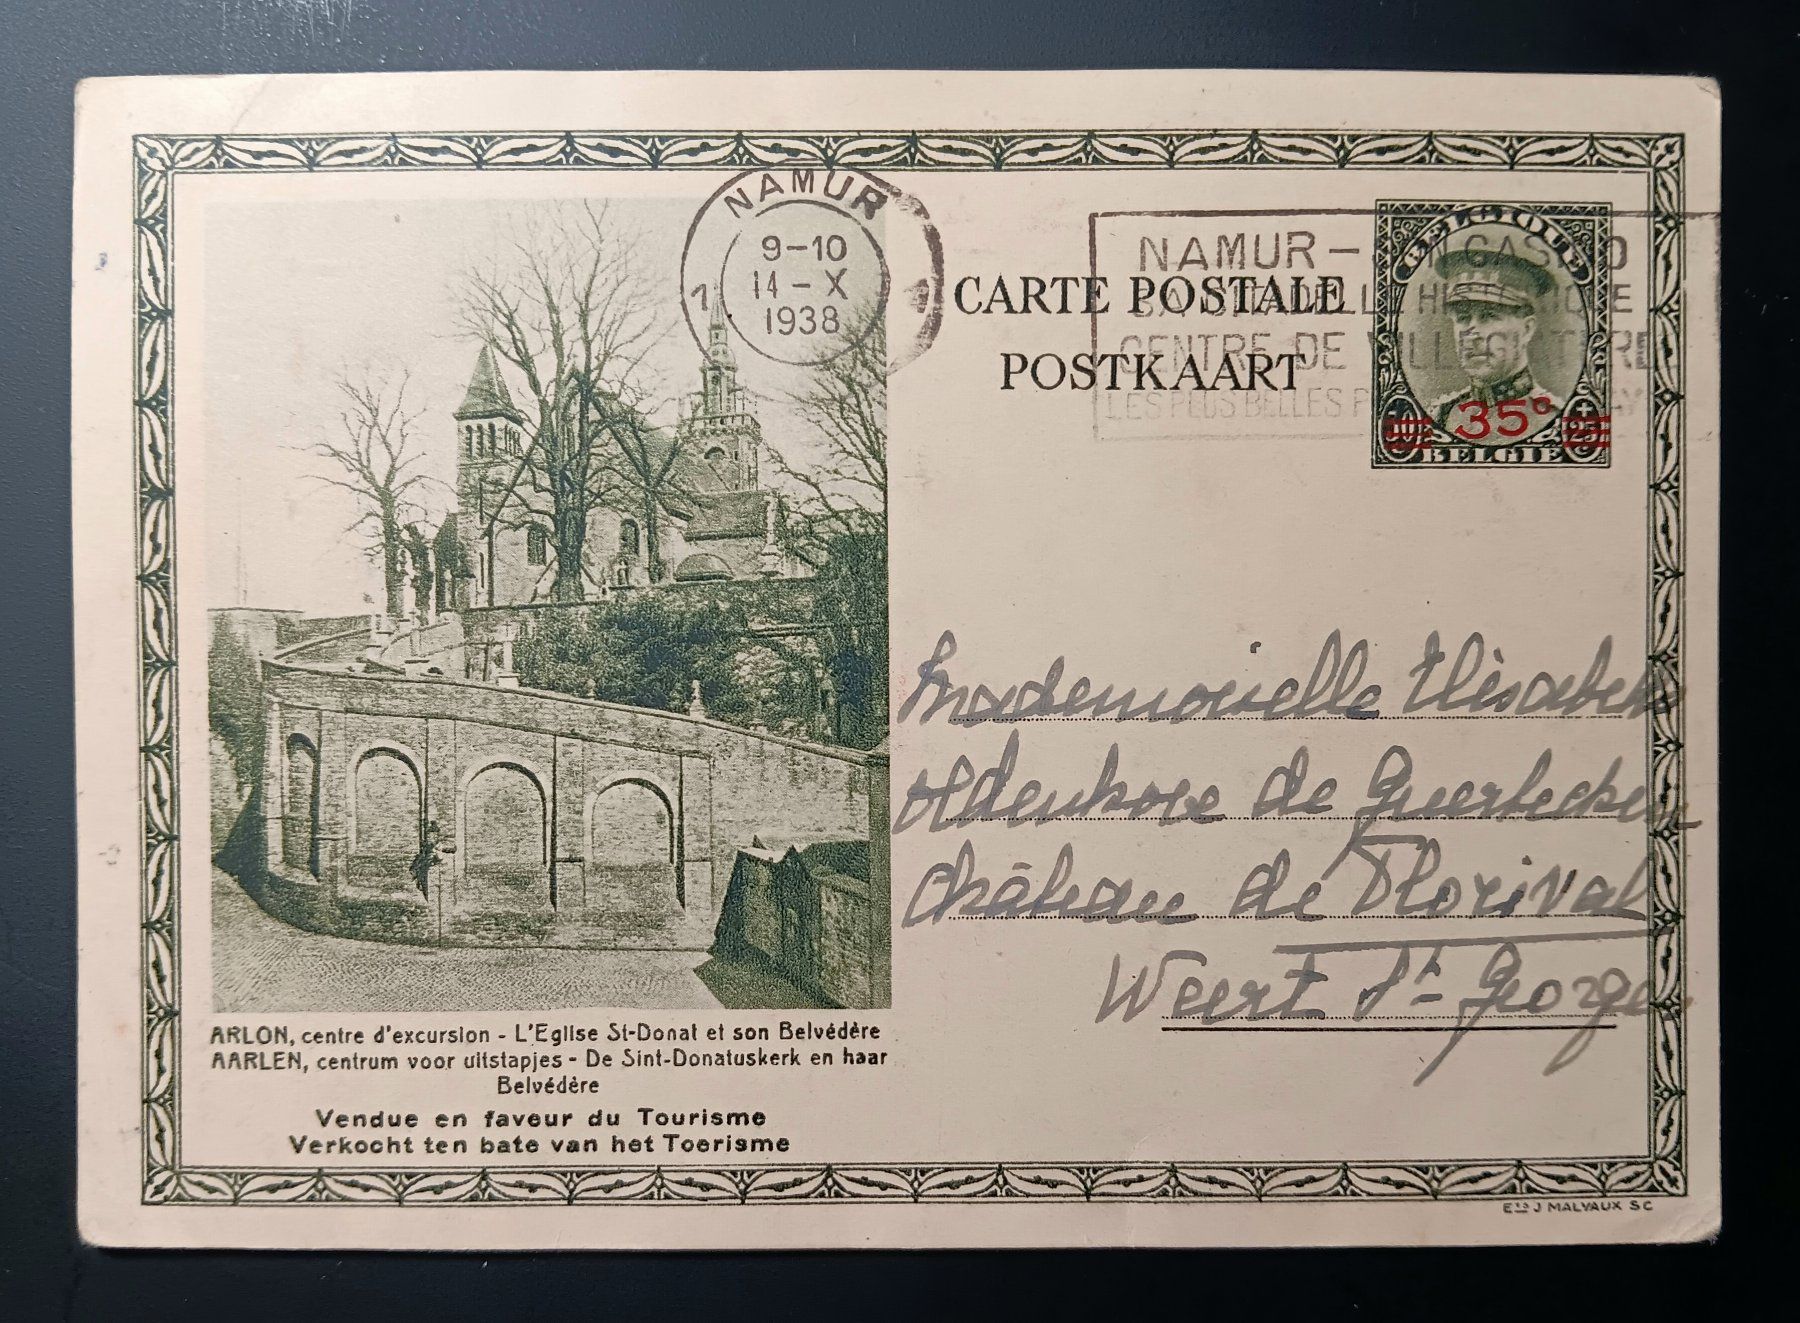 NAMUR
9-10
14-X
1938
1
NAMUR - SON CASINO
SA CITADELLE HISTORIQUE
CENTRE DE VILLEGIATURE
LES PLUS BELLES
CARTE POSTALE
POSTKAART
BELGIQUE
35c
BELGIE
Mademoiselle Elisabeth
Oldenhove de Guertechin
Château de Florival
Weert St Georges
ARLON, centre d'excursion - L'Eglise St-Donat et son Belvédère
AARLEN, centrum voor uitstapjes - De Sint-Donatuskerk en haar
Belvédère
Vendue en faveur du Tourisme
Verkocht ten bate van het Toerisme
Ets J MALVAUX SC